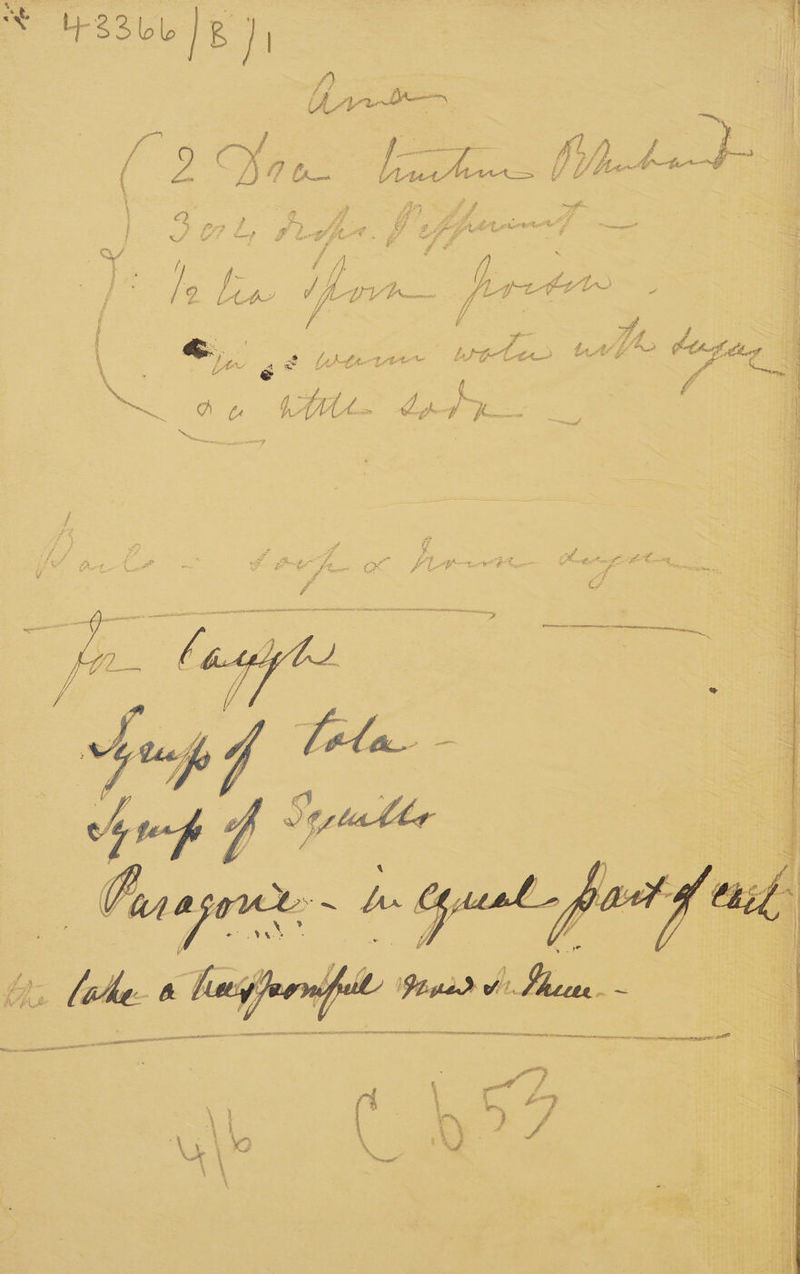 43366/B/1
2 Dra tincture Rhubarb
3 or 4 drops. Peppermint —
1/2 tea spoon poison .
in warm water with sugar
& a little soda —
Boils - soap & brown sugar
for Cough
Syrup of tola -
Syrup of Squills
Paragoric - in equal part of each
take a teaspoonful now & then -
4/6 C b 53